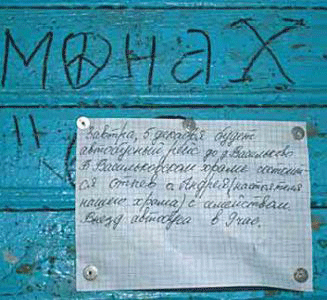 монах
"
Завтра, 5 декабря будет
автобусный рейс до д. Васильково
В Васильковском храме состоит-
ся отпев о. Андрея (настоятеля
нашего храма) с семейством
Выезд автобуса в 9 час.